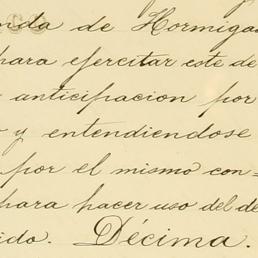 nda de Hormiga
para ejercitar este de
anticipacion por
y entendiendose
por el mismo con=
para hacer uso del de
ido. Décima.